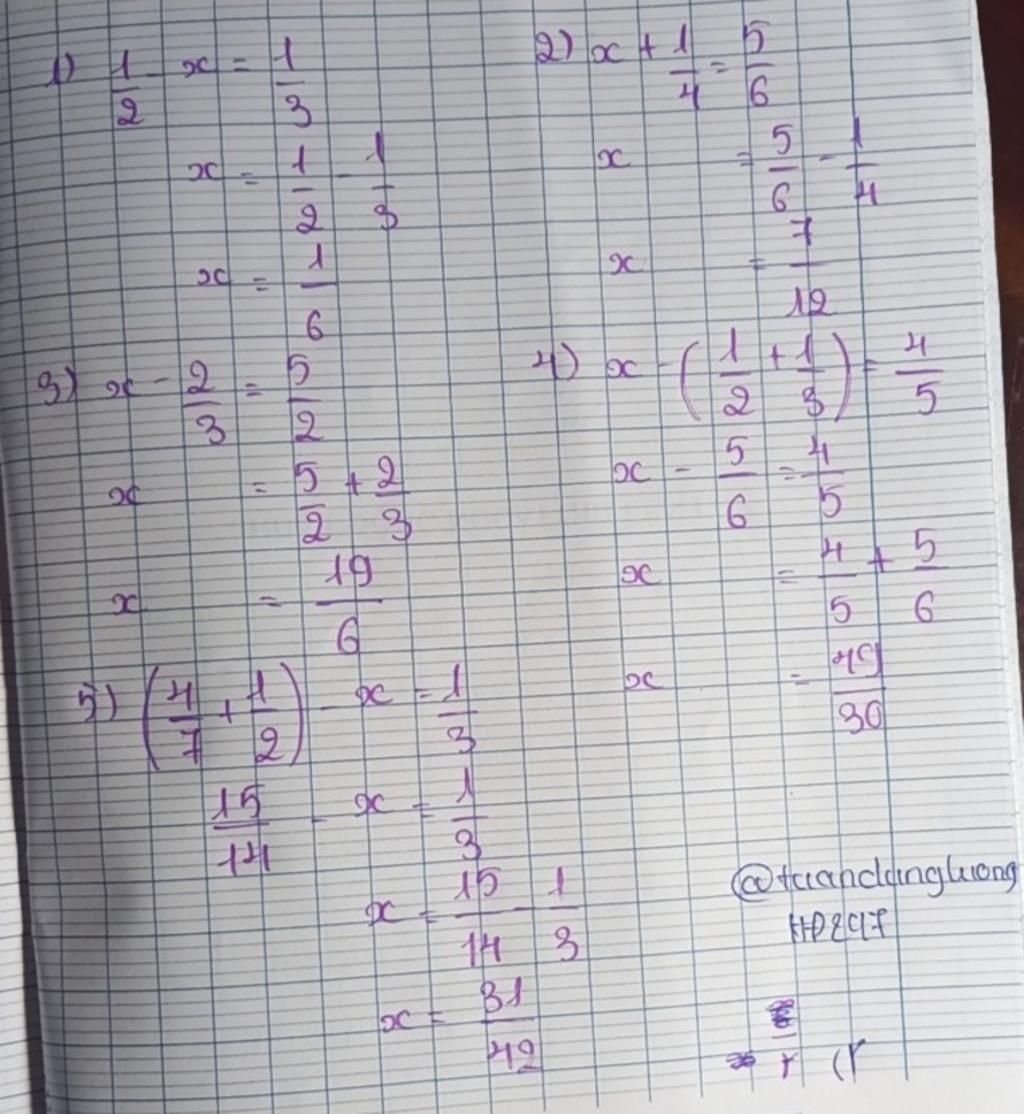 1) 1/2 - x = 1/3
x = 1/2 - 1/3
x = 1/6
2) x + 1/4 = 5/6
x = 5/6 - 1/4
x = 7/12
3) x - 2/3 = 5/2
x = 5/2 + 2/3
x = 19/6
4) x - (1/2 + 1/3) = 4/5
x - 5/6 = 4/5
x = 4/5 + 5/6
x = 49/30
5) (4/7 + 1/2) - x = 1/3
15/14 - x = 1/3
x = 15/14 - 1/3
x = 31/42
@tuandungluong